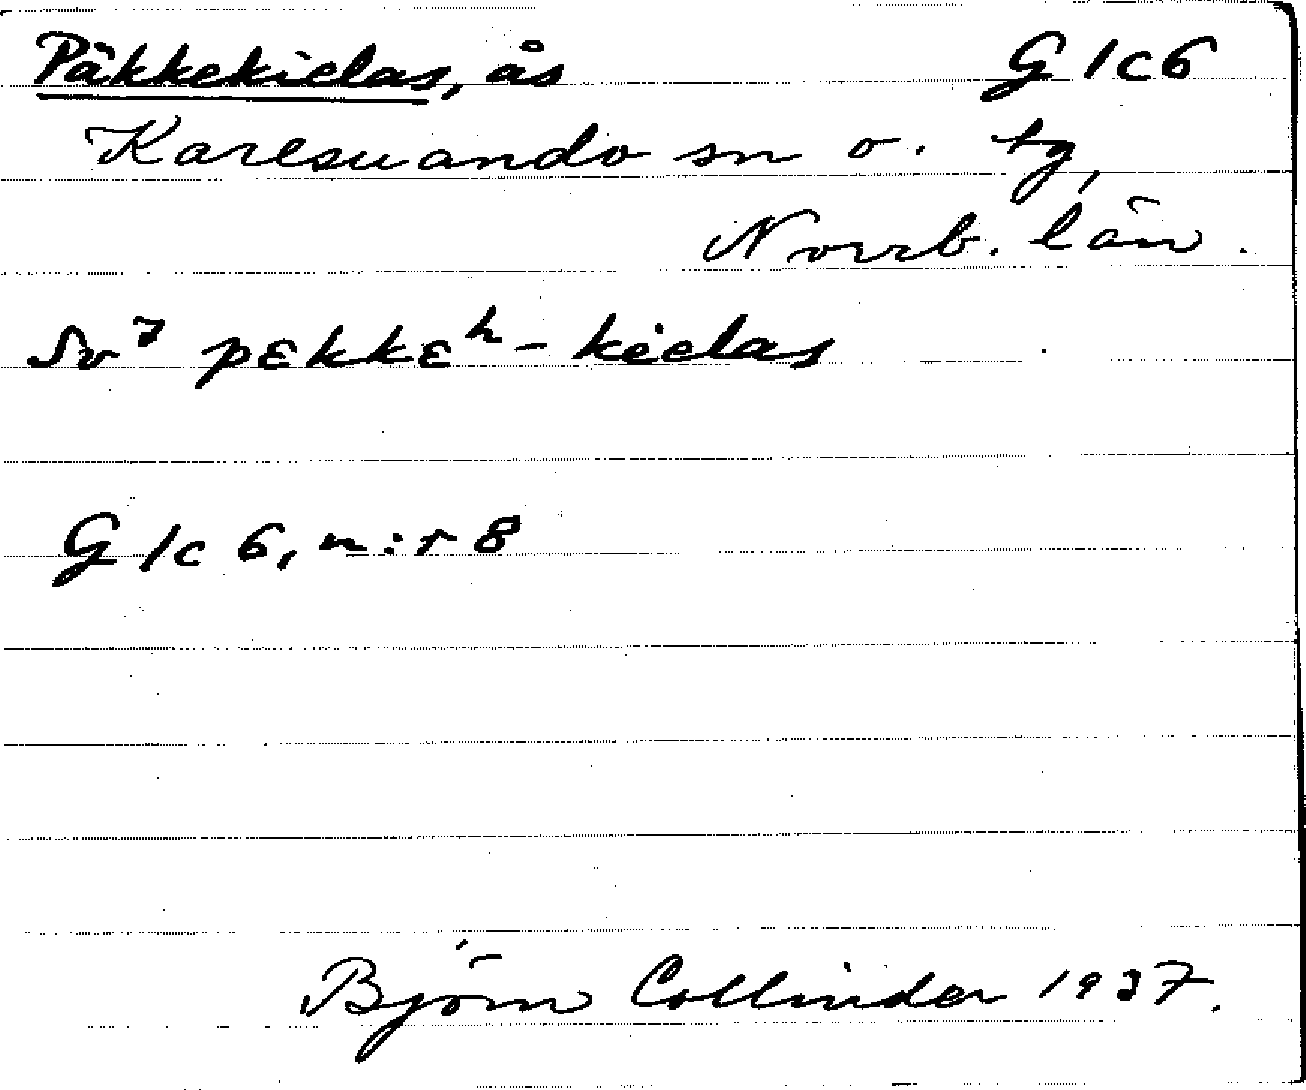 Päkkekielas, ås G 1c6
Karesuando sn o. tg,
Norrb. län.
Sv⁷ pɛkkɛʰ-kielas
G 1c 6, n:r 8
Björn Collinder 1937.